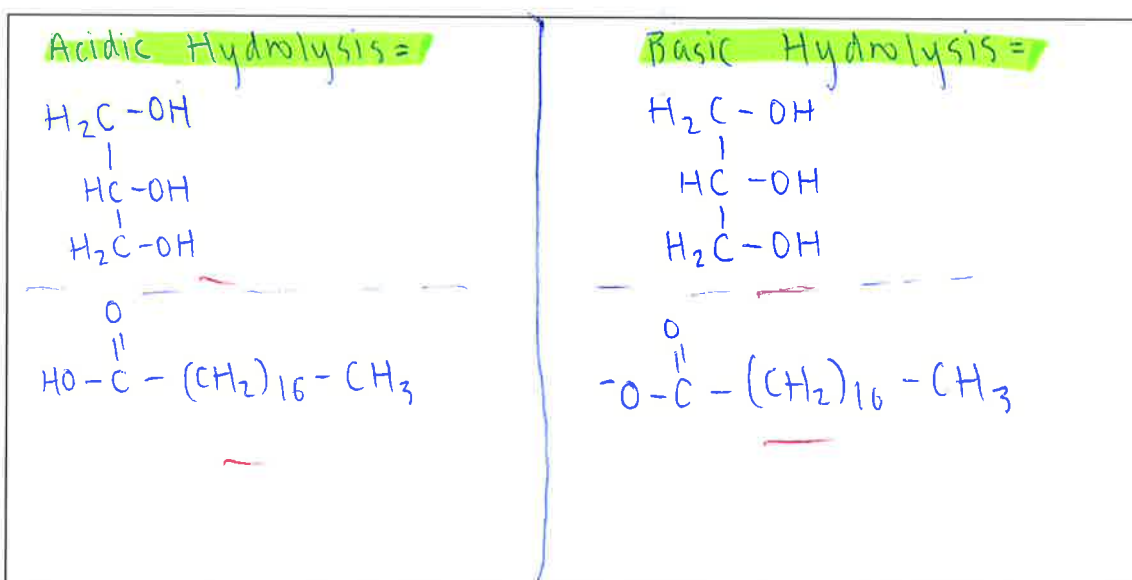 Acidic Hydrolysis=
H₂C-OH
|
HC-OH
|
H₂C-OH
O
||
HO-C-(CH₂)₁₆-CH₃
Basic Hydrolysis=
H₂C-OH
|
HC-OH
|
H₂C-OH
O
||
⁻O-C-(CH₂)₁₆-CH₃